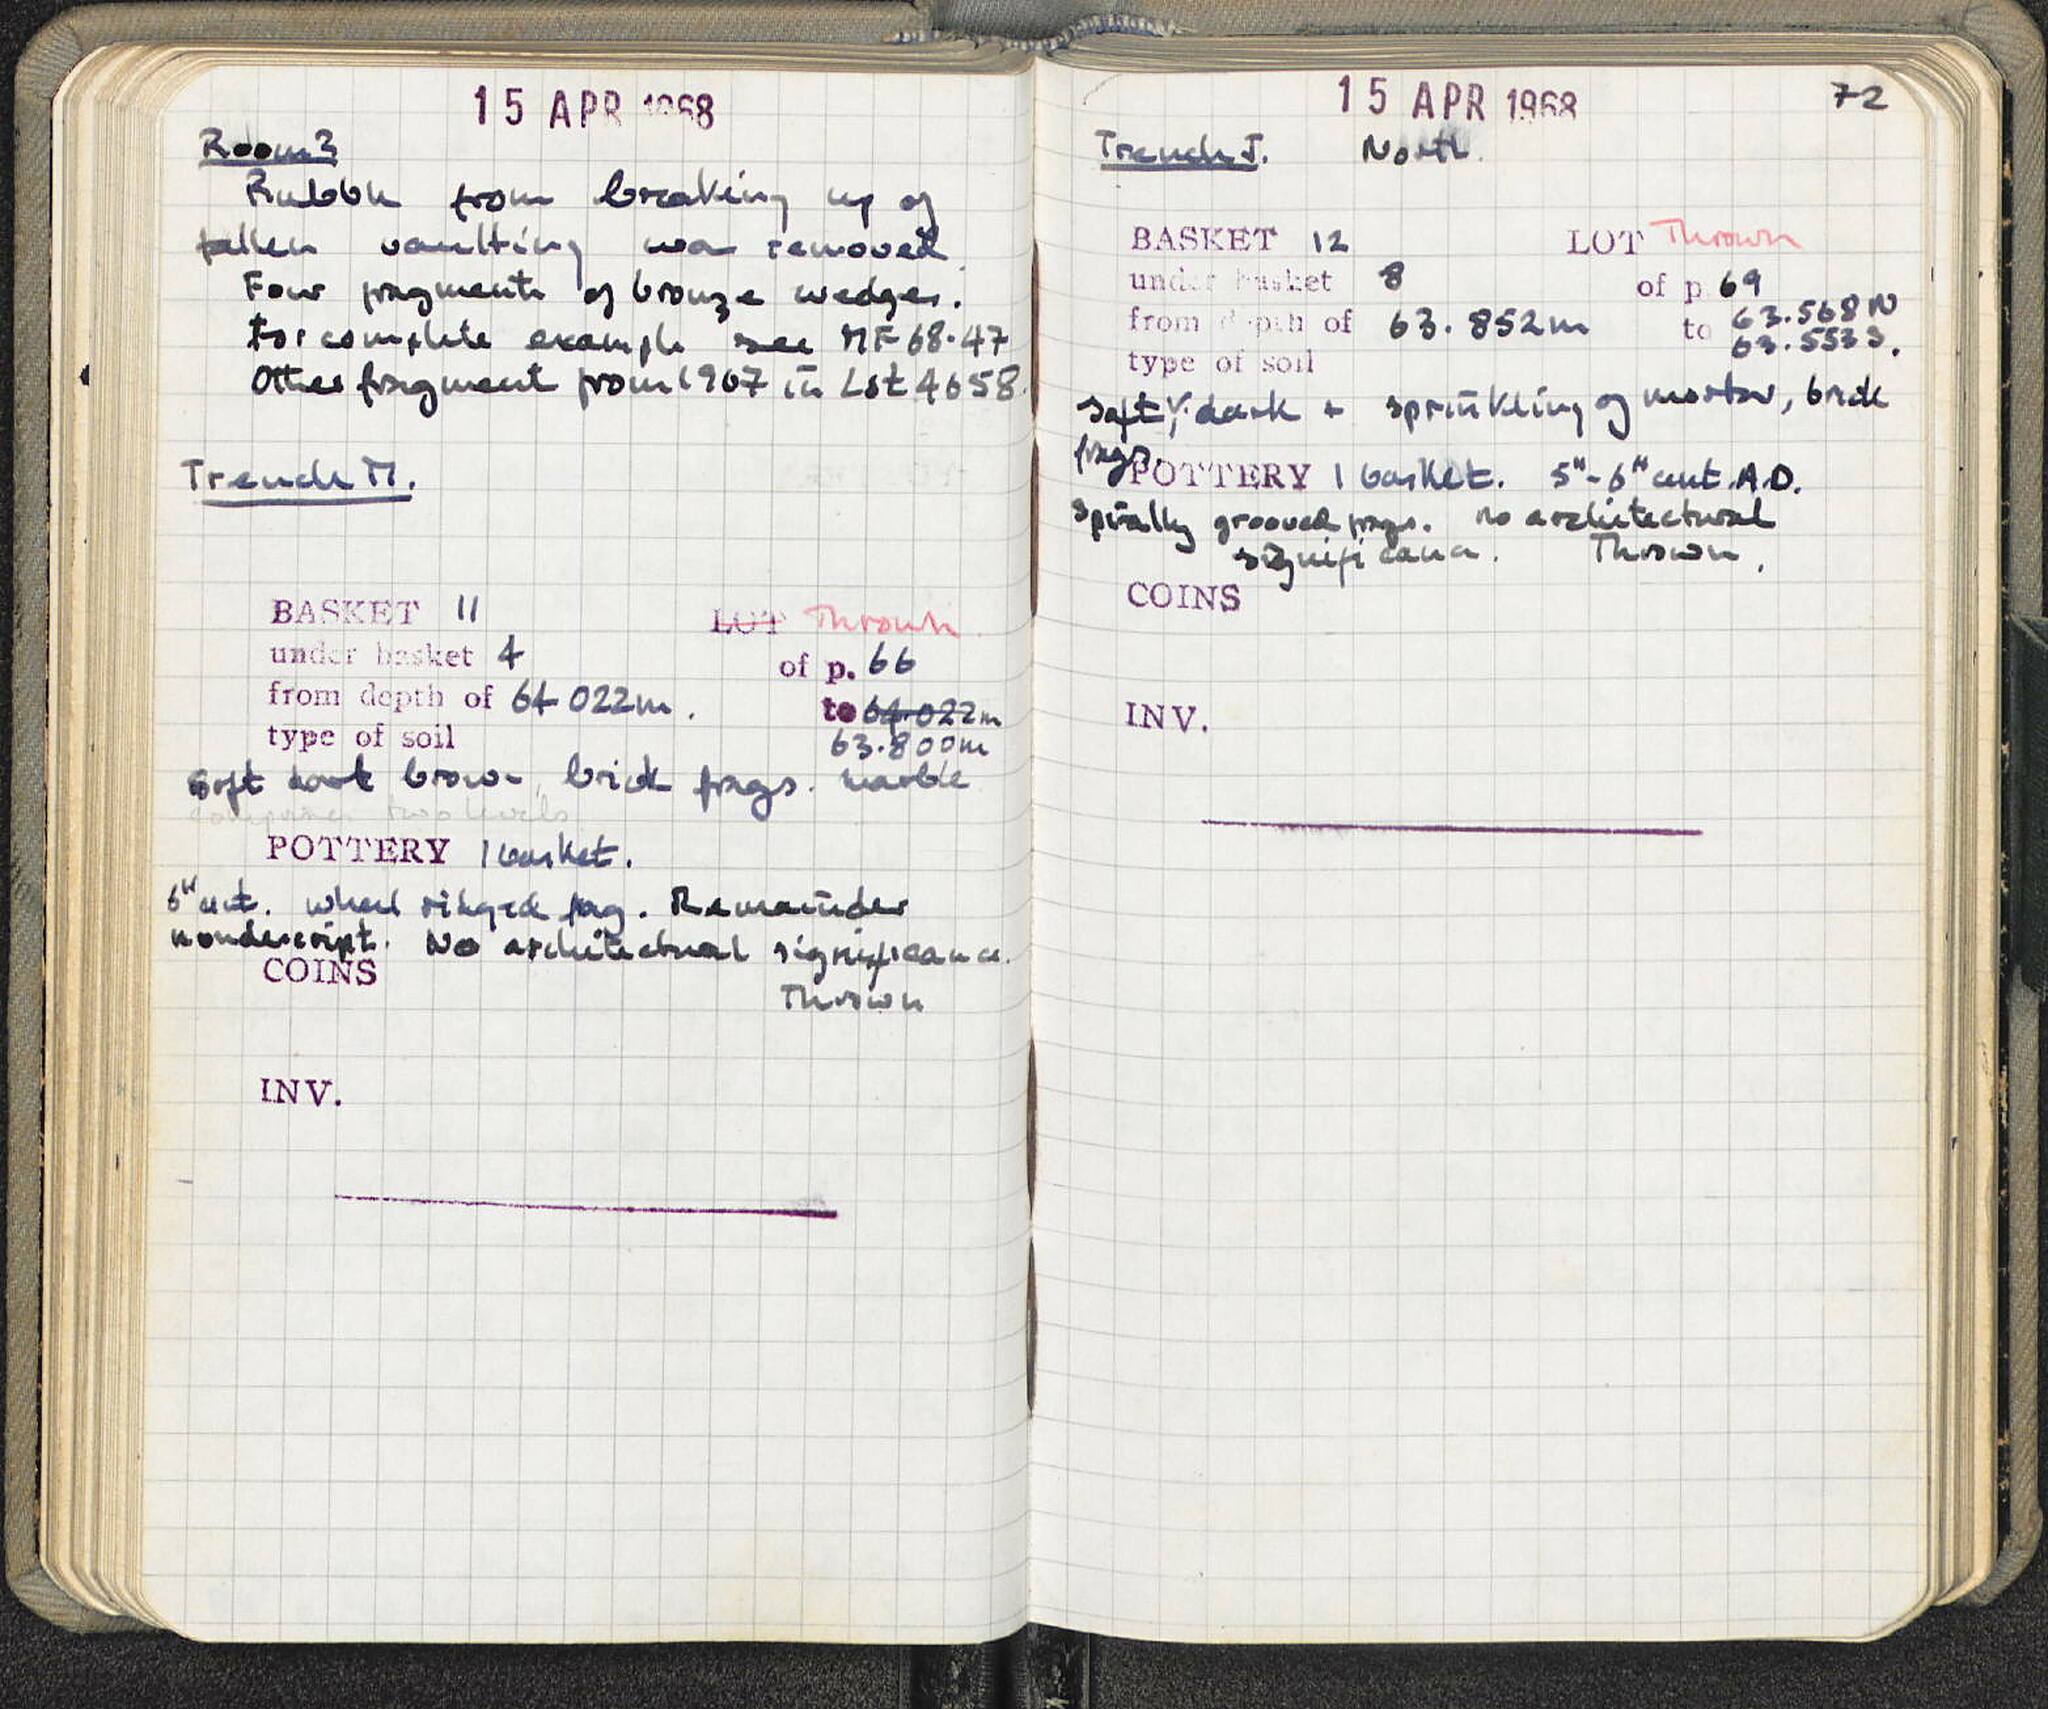 15 APR 1968
Room 3
Rubble from breaking up of
fallen vaulting was removed.
Four fragments of bronze wedges.
For complete example see MF 68-47
Other fragment from 1967 in Lot 4658.
Trench M.
BASKET 11 LOT Thrown
under basket 4 of p. 66
from depth of 64.022m. to 64.022m
type of soil 63.800m
Soft dark brown, brick frags. marble
comprises two levels
POTTERY 1 basket.
6th cent. wheel ridged frag. Remainder
nondescript. No architectural significance.
COINS
Thrown
INV.
15 APR 1968 72
Trench J. North.
BASKET 12 LOT Thrown
under basket 8 of p 69
from depth of 63.852m to 63.568 N
63.553 S.
type of soil
Soft, dark + sprinkling of mortar, brick
frags.
POTTERY 1 basket. 5th-6th cent. A.D.
Spirally grooved frags. No architectural
significance. Thrown.
COINS
INV.